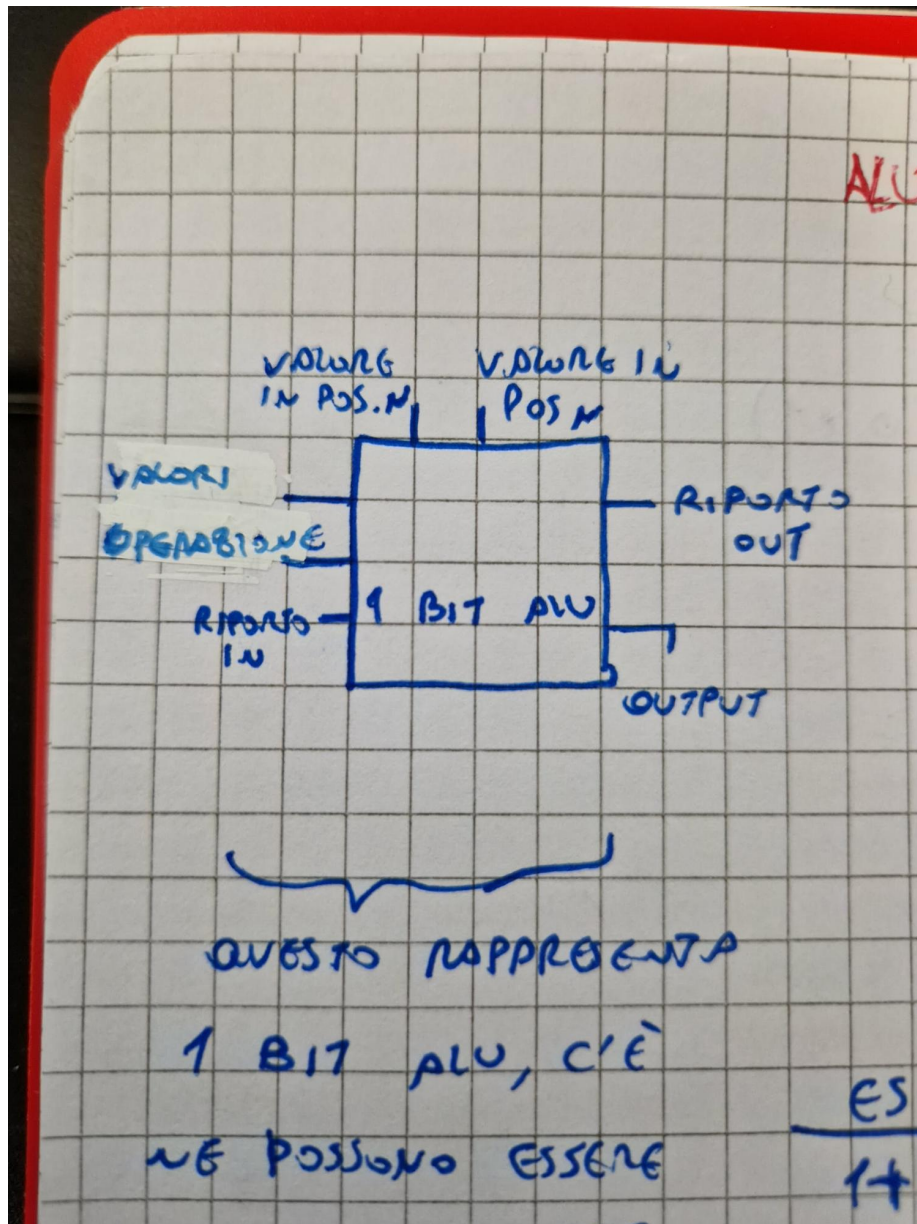 ALU
VALORE
IN POS.N
VALORE IN
POS N
VALORI
OPERAZIONE
RIPORTO
IN
1 BIT ALU
RIPORTO
OUT
OUTPUT
QUESTO RAPPRESENTA
1 BIT ALU, C'È
NE POSSONO ESSERE
ES
1+